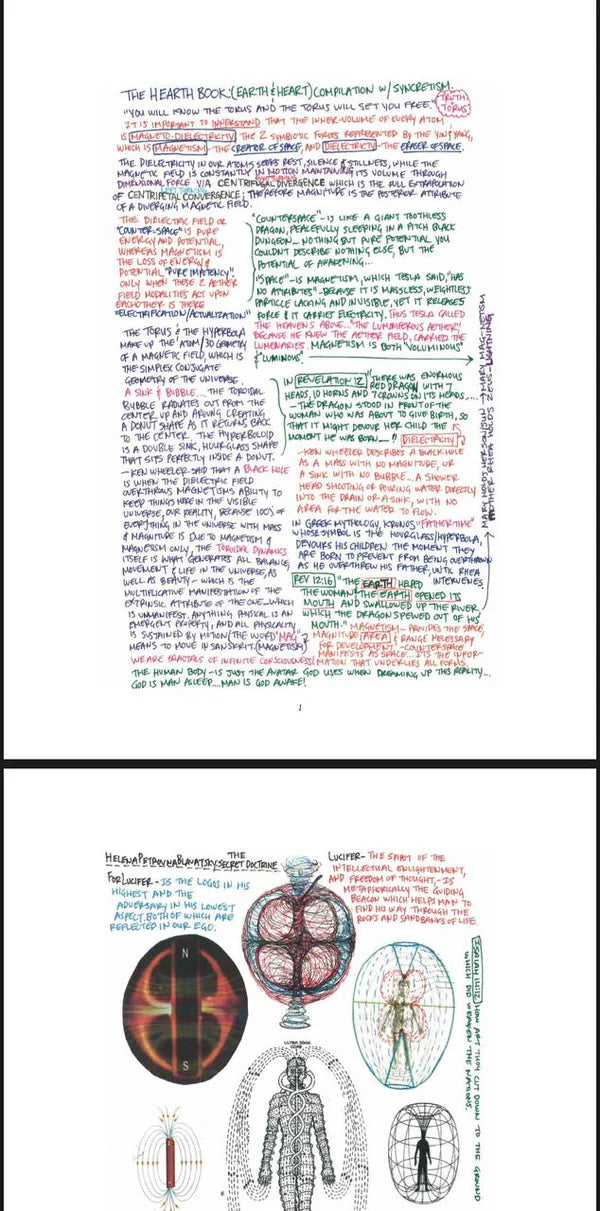 THE HEARTH BOOK:(EARTH & HEART) COMPILATION W/ SYNCRETISM.
"YOU WILL KNOW THE TORUS AND THE TORUS WILL SET YOU FREE."
TRUTH
TORUS
IT IS IMPORTANT TO INNERSTAND THAT THE INNER-VOLUME OF EVERY ATOM
IS MAGNETO-DIELECTRICITY THE 2 SYMBIOTIC FORCES REPRESENTED BY THE YIN & YANG,
WHICH IS MAGNETISM-THE CREATOR OF SPACE, AND DIELECTRICITY-THE ERASER OF SPACE.
THE DIELECTRICITY IN OUR ATOMS SEEKS REST, SILENCE & STILLNESS, WHILE THE
MAGNETIC FIELD IS CONSTANTLY IN MOTION MAINTAINING ITS VOLUME THROUGH
DIMENSIONAL FORCE VIA CENTRIFUGAL DIVERGENCE WHICH IS THE FULL EXTRAPOLATION
OF CENTRIPETAL CONVERGENCE; THEREFORE MAGNITUDE IS THE POSTERIOR ATTRIBUTE
OF A DIVERGING MAGNETIC FIELD.
THE DIELECTRIC FIELD OR
"COUNTER-SPACE" IS PURE
ENERGY AND POTENTIAL,
WHEREAS MAGNETISM IS
THE LOSS OF ENERGY &
POTENTIAL "PURE IMPOTENCY".
ONLY WHEN THESE 2 AETHER
FIELD MODALITIES ACT UPON
EACHOTHER IS THERE
"ELECTRIFICATION/ACTUALIZATION"
"COUNTERSPACE"- IS LIKE A GIANT TOOTHLESS
DRAGON, PEACEFULLY SLEEPING IN A PITCH BLACK
DUNGEON... NOTHING BUT PURE POTENTIAL YOU
COULDN'T DESCRIBE NOTHING ELSE, BUT THE
POTENTIAL OF AWAKENING...
"SPACE"- IS MAGNETISM, WHICH TESLA SAID, "HAS
NO ATTRIBUTES"-BECAUSE IT IS MASSLESS, WEIGHTLESS
PARTICLE LACKING AND INVISIBLE, YET IT RELEASES
FORCE & IT CARRIES ELECTRICITY. THUS TESLA CALLED
THE HEAVENS ABOVE.. "THE LUMINIFEROUS AETHER,"
BECAUSE HE KNEW THE AETHER FIELD, CARRIED THE
LUMINARIES. MAGNETISM IS BOTH "VOLUMINOUS"
& "LUMINOUS"
THE TORUS & THE HYPERBOLA
MAKE UP THE ATOM/3D GEOMETRY
OF A MAGNETIC FIELD, WHICH IS
THE SIMPLEX CONJUGATE
GEOMETRY OF THE UNIVERSE.
A SINK & BUBBLE... THE TOROIDAL
BUBBLE RADIATES OUT FROM THE
CENTER UP AND AROUND CREATING
A DONUT SHAPE AS IT RETURNS BACK
TO THE CENTER. THE HYPERBOLOID
IS A DOUBLE SINK, HOURGLASS SHAPE
THAT SITS PERFECTLY INSIDE A DONUT.
- KEN WHEELER SAID THAT A BLACK HOLE
IS WHEN THE DIELECTRIC FIELD
OVERTHROWS MAGNETISMS ABILITY TO
KEEP THINGS HERE IN THE VISIBLE
UNIVERSE, OUR REALITY, BECAUSE 100% OF
EVERYTHING IN THE UNIVERSE WITH MASS
& MAGNITUDE IS DUE TO MAGNETISM &
MAGNETISM ONLY, THE TOROIDAL DYNAMICS
ITSELF IS WHAT GENERATES ALL BALANCE,
MOVEMENT & LIFE IN THE UNIVERSE, AS
WELL AS BEAUTY - WHICH IS THE
MULTIPLICATIVE MANIFESTATION OF THE
EXTRINSIC ATTRIBUTE OF THE ONE...WHICH
IS UNMANIFEST. ANYTHING PHYSICAL IS AN
EMERGENT PROPERTY, AND ALL PHYSICALITY
IS SUSTAINED BY MOTION (THE WORD "MAG"
MEANS TO MOVE IN SANSKRIT.(MAGNETISM)
IN REVELATION 12 "THERE WAS ENORMOUS
RED DRAGON WITH 7
HEADS, 10 HORNS AND 7 CROWNS ON ITS HEADS....
- THE DRAGON STOOD IN FRONT OF THE
WOMAN WHO WAS ABOUT TO GIVE BIRTH, SO
THAT IT MIGHT DEVOUR HER CHILD THE
MOMENT HE WAS BORN...." DIELECTRICITY
- KEN WHEELER DESCRIBES A BLACK HOLE
AS A MASS WITH NO MAGNITUDE, OR
A SINK WITH NO BUBBLE... A SHOWER
HEAD SHOOTING OR POURING WATER DIRECTLY
INTO THE DRAIN OR A SINK, WITH NO
AREA FOR THE WATER TO FLOW.
IN GREEK MYTHOLOGY, KRONOS "FATHER-TIME"
WHOSE SYMBOL IS THE HOURGLASS/HYPERBOLA,
DEVOURS HIS CHILDREN THE MOMENT THEY
ARE BORN TO PREVENT FROM BEING OVERTHROWN
AS HE OVERTHREW HIS FATHER, UNTIL RHEA
INTERVENES.
REV 12:16 "THE EARTH HELPED
THE WOMAN & THE EARTH OPENED ITS
MOUTH AND SWALLOWED UP THE RIVER
WHICH THE DRAGON SPEWED OUT OF HIS
MOUTH." MAGNETISM - PROVIDES THE SPACE,
MAGNITUDE/AREA & RANGE NECESSARY
FOR DEVELOPMENT - COUNTERSPACE
MANIFESTS AS SPACE... IT IS THE INFOR-
MATION THAT UNDERLIES ALL FORMS.
MARY HOLDS HER SON/SUN → MARY MAG-NETISM
MOTHER RHEA HOLDS ZEUS-LIGHTNING
WE ARE FRACTALS OF INFINITE CONSCIOUSNESS!
THE HUMAN BODY - IS JUST THE AVATAR GOD USES WHEN DREAMING UP THIS REALITY...
GOD IS MAN ASLEEP....MAN IS GOD AWAKE!
1
HELENA PETROVNA BLAVATSKY THE SECRET DOCTRINE
FOR LUCIFER - IS THE LOGOS IN HIS
HIGHEST AND THE
ADVERSARY IN HIS LOWEST
ASPECT. BOTH OF WHICH ARE
REFLECTED IN OUR EGO.
LUCIFER - THE SPIRIT OF THE
INTELLECTUAL ENLIGHTENMENT,
AND FREEDOM OF THOUGHT, - IS
METAPHORICALLY THE GUIDING
BEACON WHICH HELPS MAN TO
FIND HIS WAY THROUGH THE
ROCKS AND SANDBANKS OF LIFE.
N
S
ISAIAH 14:12 HOW ART THOU CUT DOWN TO THE GROUND
WHICH DID WEAKEN THE NATIONS.